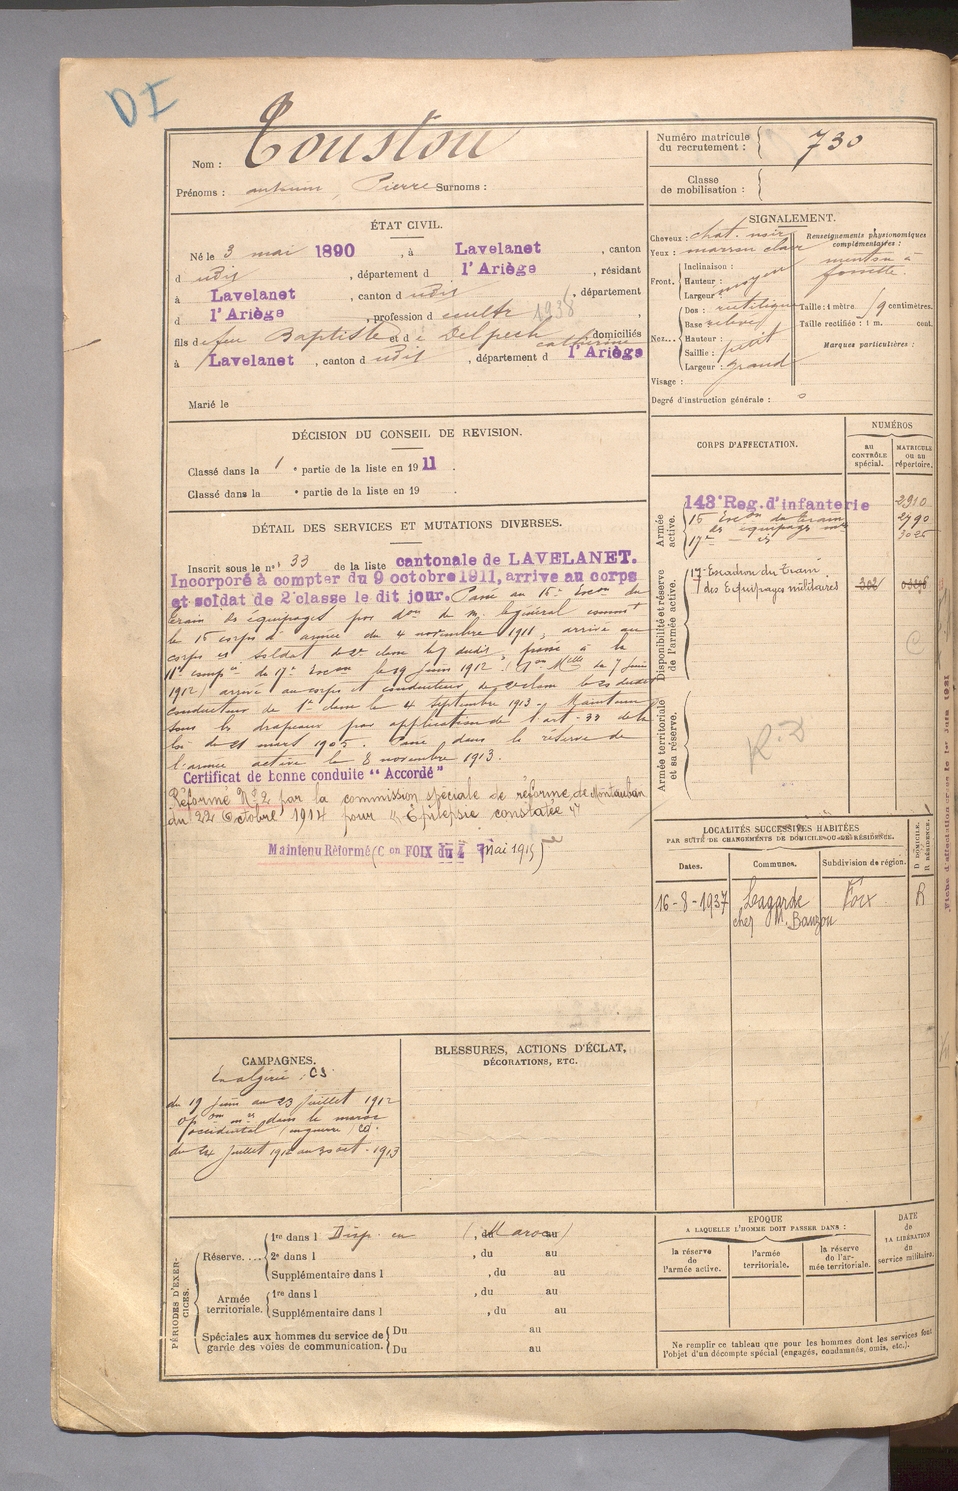 DI
Nom : Couston
Prénoms : Antoine, Pierre Surnoms :
Numéro matricule du recrutement : 730
Classe de mobilisation :
ÉTAT CIVIL.
Né le 3 mai 1890 , à Lavelanet , canton
d udit , département d l'Ariège , résidant
à Lavelanet , canton d udit , département
d l'Ariège , profession d cultr 1938 ,
fils de feu Baptiste et de Delpech Catherine domiciliés
à Lavelanet , canton d udit , département d l'Ariège
Marié le
SIGNALEMENT.
Cheveux : chat. noir
Yeux : marron clair
Front. Inclinaison :
Hauteur : moyen
Largeur :
Nez... Dos : rectiligne
Base relevé
Hauteur :
Saillie : petit
Largeur : grand
Visage :
Renseignements physionomiques complémentaires :
menton à
fossette.
Taille : 1 mètre 59 centimètres.
Taille rectifiée : 1 m. cent.
Marques particulières :
Degré d'instruction générale :
DÉCISION DU CONSEIL DE REVISION.
Classé dans la 1 e partie de la liste en 1911.
Classé dans la e partie de la liste en 19 .
DÉTAIL DES SERVICES ET MUTATIONS DIVERSES.
Inscrit sous le n° 33 de la liste cantonale de LAVELANET.
Incorporé à compter du 9 octobre 1911, arrive au corps
et soldat de 2e classe le dit jour. Passé au 16e Escon du
train des équipages par don de M. le général commdt
le 16 corps d'armée du 4 novembre 1911, arrivé au
corps et soldat de 2e classe le 7 dudit, passé à la
11e compie du 17e Escon le 19 juin 1912 (on Mlle du 7 juin
1912) arrivé au corps et conducteur de 2e classe le 20 dudit
conducteur de 1e classe le 4 septembre 1913. Maintenu
sous les drapeaux par application de l'art. 33 de la
loi du 21 mars 1905. Passé dans la réserve de
l'armée active le 8 novembre 1913.
Certificat de bonne conduite "Accordé"
Réformé N° 2 par la commission spéciale de réforme de Montauban
du 22 Octobre 1914 pour "Épilepsie constatée"
Maintenu Réformé (Con FOIX du 7 Mai 1915)
CORPS D'AFFECTATION.
NUMÉROS
AU CONTRÔLE spécial.
MATRICULE ou au répertoire.
Armée active.
143e Reg. d'infanterie 2910
16 Escon du train des équipages mres 2790
17e - id - 3026
Disponibilité et réserve de l'armée active.
17e Escadron du Train
des Equipages militaires 302
Armée territoriale et sa réserve.
R.D
LOCALITÉS SUCCESSIVES HABITÉES
PAR SUITE DE CHANGEMENTS DE DOMICILE OU DE RÉSIDENCE.
Dates. Communes. Subdivision de région. D DOMICILE. R RÉSIDENCE.
16-8-1937 Lagarde Foix R
chez M. Bauzou
CAMPAGNES.
En Algérie, CS
du 19 juin au 23 juillet 1912
opons mres dans le maroc
occidental (en guerre) CD.
du 24 juillet 1912 au 30 oct. 1913
BLESSURES, ACTIONS D'ÉCLAT,
DÉCORATIONS, ETC.
PÉRIODES D'EXERCICES.
Réserve.... 1re dans l Disp. en (Maroc) , du au
2e dans l , du au
Supplémentaire dans l , du au
Armée territoriale. 1re dans l , du au
Supplémentaire dans l , du au
Spéciales aux hommes du service de garde des voies de communication. Du au
Du au
EPOQUE
A LAQUELLE L'HOMME DOIT PASSER DANS :
la réserve de l'armée active.
l'armée territoriale.
la réserve de l'armée territoriale.
DATE de LA LIBÉRATION du service militaire.
Ne remplir ce tableau que pour les hommes dont les services font
l'objet d'un décompte spécial (engagés, condamnés, omis, etc.).